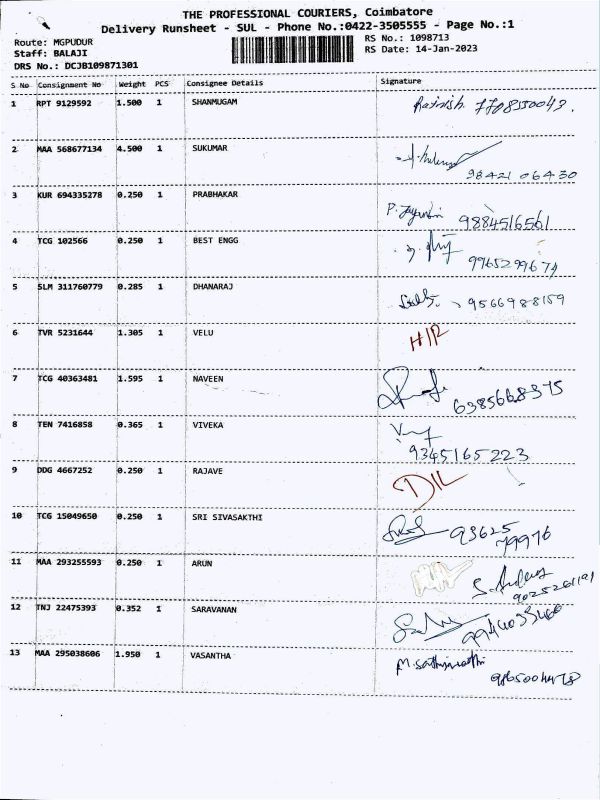 THE PROFESSIONAL COURIERS, Coimbatore
Delivery Runsheet - SUL - Phone No.:0422-3505555 - Page No.:1
Route: MGPUDUR
Staff: BALAJI
DRS No.: DCJB109871301
RS No.: 1098713
RS Date: 14-Jan-2023
S No Consignment No Weight PCS Consignee Details Signature
1 RPT 9129592 1.500 1 SHANMUGAM
2 MAA 568677134 4.500 1 SUKUMAR
98421 06430
3 KUR 694335278 0.250 1 PRABHAKAR
9884516561
4 TCG 102566 0.250 1 BEST ENGG
9965299674
5 SLM 311760779 0.285 1 DHANARAJ 9566988159
6 TVR 5231644 1.305 1 VELU H/R
7 TCG 40363481 1.595 1 NAVEEN
6385668375
8 TEN 7416858 0.365 1 VIVEKA
9345165223
9 DDG 4667252 0.250 1 RAJAVE D/L
10 TCG 15049650 0.250 1 SRI SIVASAKTHI 93625
79976
11 MAA 293255593 0.250 1 ARUN
12 TNJ 22475393 0.352 1 SARAVANAN
13 MAA 295038606 1.950 1 VASANTHA